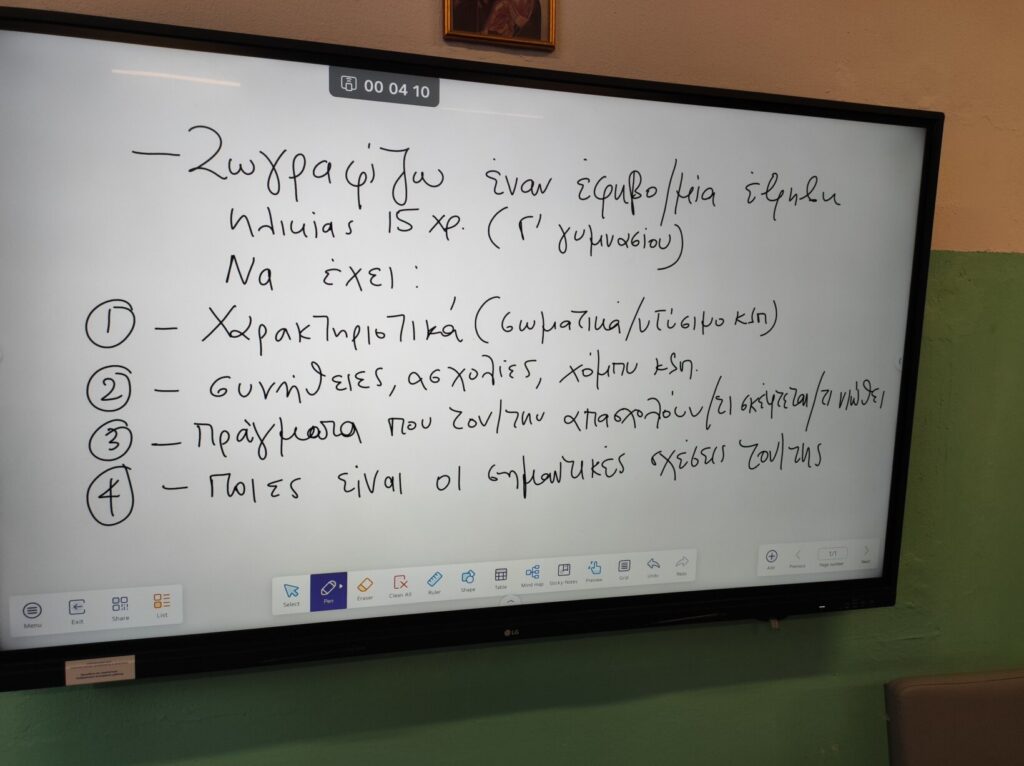 00 04 10
— Ζωγραφίζω έναν έφηβο/μία έφηβη
ηλικίας 15 χρ. (Γ' γυμνασίου)
Να έχει:
① – Χαρακτηριστικά (σωματικά/ντύσιμο κλπ)
② – συνήθειες, ασχολίες, χόμπυ κλπ.
③ – Πράγματα που τον/την απασχολούν/τι σκέφτεται/τι νιώθει
④ – Ποιες είναι οι σημαντικές σχέσεις του/της
Menu Exit Share List
Select Pen Eraser Clean All Ruler Shape Table Mind map Sticky Notes Preview Grid Undo Redo
Add Previous 1/1 Page number Next
LG